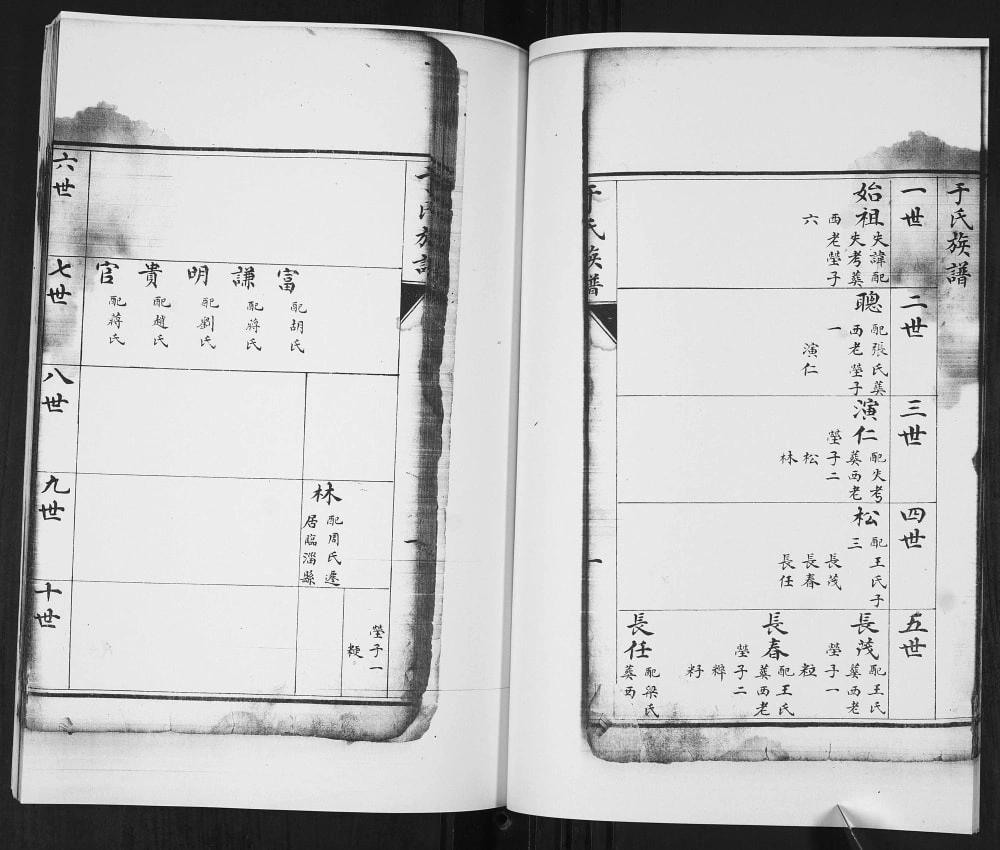 于氏族譜
一世
始祖
失諱配
失考葬
西老塋子
六
二世
聰
配張氏葬
西老塋子
一
演仁
三世
演仁
配失考
葬西老
塋子二
松
林
四世
松
配王氏子
三
長茂
長春
長任
五世
長茂
配王氏
葬西老
塋子一
粒
長春
配王氏
葬西老
塋子二
粰
籽
長任
配梁氏
葬西
于氏族譜
一
氏族譜
一
塋子一
六世
七世
富
配胡氏
謙
配蔣氏
明
配劉氏
貴
配趙氏
官
配蔣氏
八世
九世
林
配周氏遷
居臨淄縣
十世